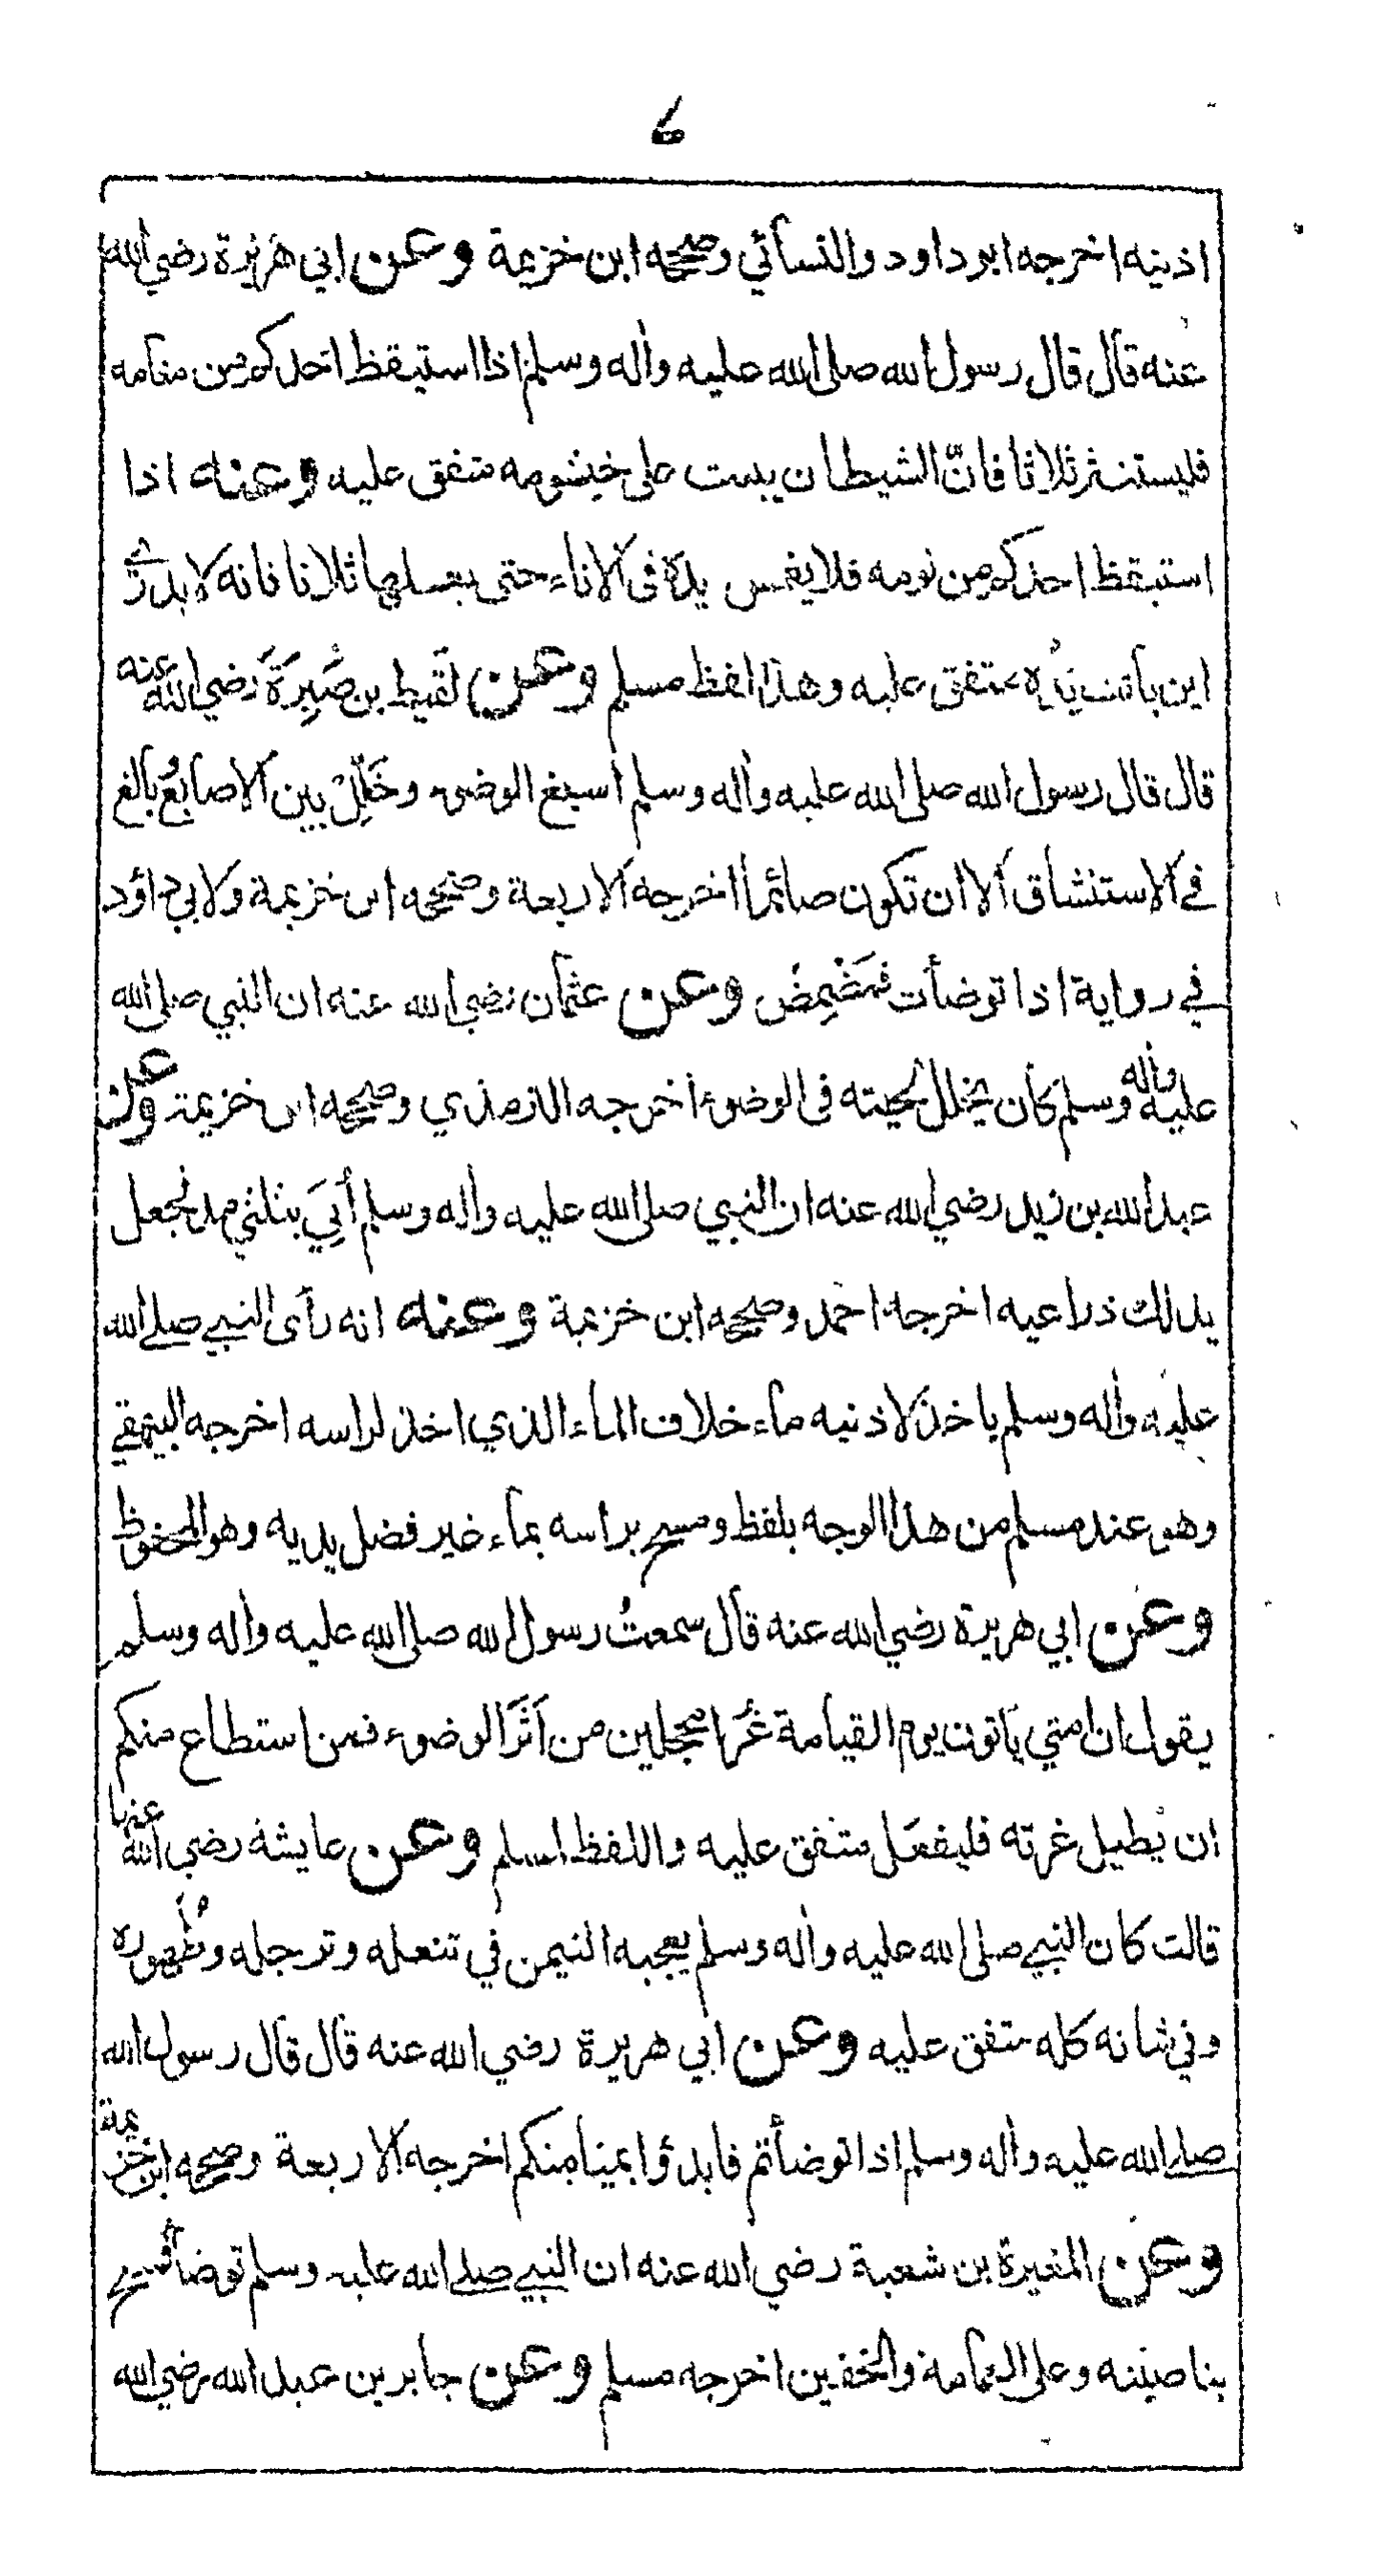 6
اذنيه اخرجه ابو داود والنسائي وصححه ابن خزيمة وعن ابي هريرة رضي الله
عنه قال قال رسول الله صلى الله عليه واله وسلم اذا استيقظ احدكم من منامه
فليستنثر ثلاثا فانّ الشيطان يبيت على خيشومه متفق عليه وعنه اذا
استيقظ احدكم من نومه فلا يغمس يده فى الاناء حتى يغسلها ثلاثا فانه لا يدري
اين باتت يده متفق عليه وهذا لفظ مسلم وعن لقيط بن صَبِرَة رَضي الله عنه
قال قال رسول الله صلى الله عليه واله وسلم اسبغ الوضوء وخَلِّلْ بين الاصابع وبالغ
في الاستنشاق الا ان تكون صائما اخرجه الاربعة وصححه ابن خزيمة ولابي داؤد
في رواية اذا توضأت فمَضْمِضْ وعن عثمان رضي الله عنه ان النبي صلى الله
عليه واله وسلم كان يخلل لحيته فى الوضوء اخرجه الترمذي وصححه ابن خزيمة وعن
عبد الله بن زيد رضي الله عنه ان النبي صلى الله عليه واله وسلم أُتِيَ بثلثي مد فجعل
يدلك ذراعيه اخرجه احمد وصححه ابن خزيمة وعنه انه رأى النبي صلى الله
عليه واله وسلم ياخذ لاذنيه ماء خلاف الماء الذي اخذ لراسه اخرجه البيهقي
وهو عند مسلم من هذا الوجه بلفظ ومسح براسه بماء غير فضل يديه وهو المحفوظ
وعن ابي هريرة رضي الله عنه قال سمعتُ رسول الله صلى الله عليه واله وسلم
يقول ان امتي يأتون يوم القيامة غُرا محجلين من اَثَر الوضوء فمن استطاع منكم
ان يُطيل غرته فليفعل متفق عليه واللفظ لمسلم وعن عايشة رضي الله عنها
قالت كان النبي صلى الله عليه واله وسلم يعجبه التيمن في تنعله وترجله وطُهوره
وفي شانه كله متفق عليه وعن ابي هريرة رضي الله عنه قال قال رسول الله
صلى الله عليه واله وسلم اذا توضأتم فابدؤا بميامنكم اخرجه الاربعة وصححه ابن خزيمة
وعن المغيرة بن شعبة رضي الله عنه ان النبي صلى الله عليه وسلم توضأ فمسح
بناصيته وعلى العمامة والخفين اخرجه مسلم وعن جابر بن عبد الله رضي الله